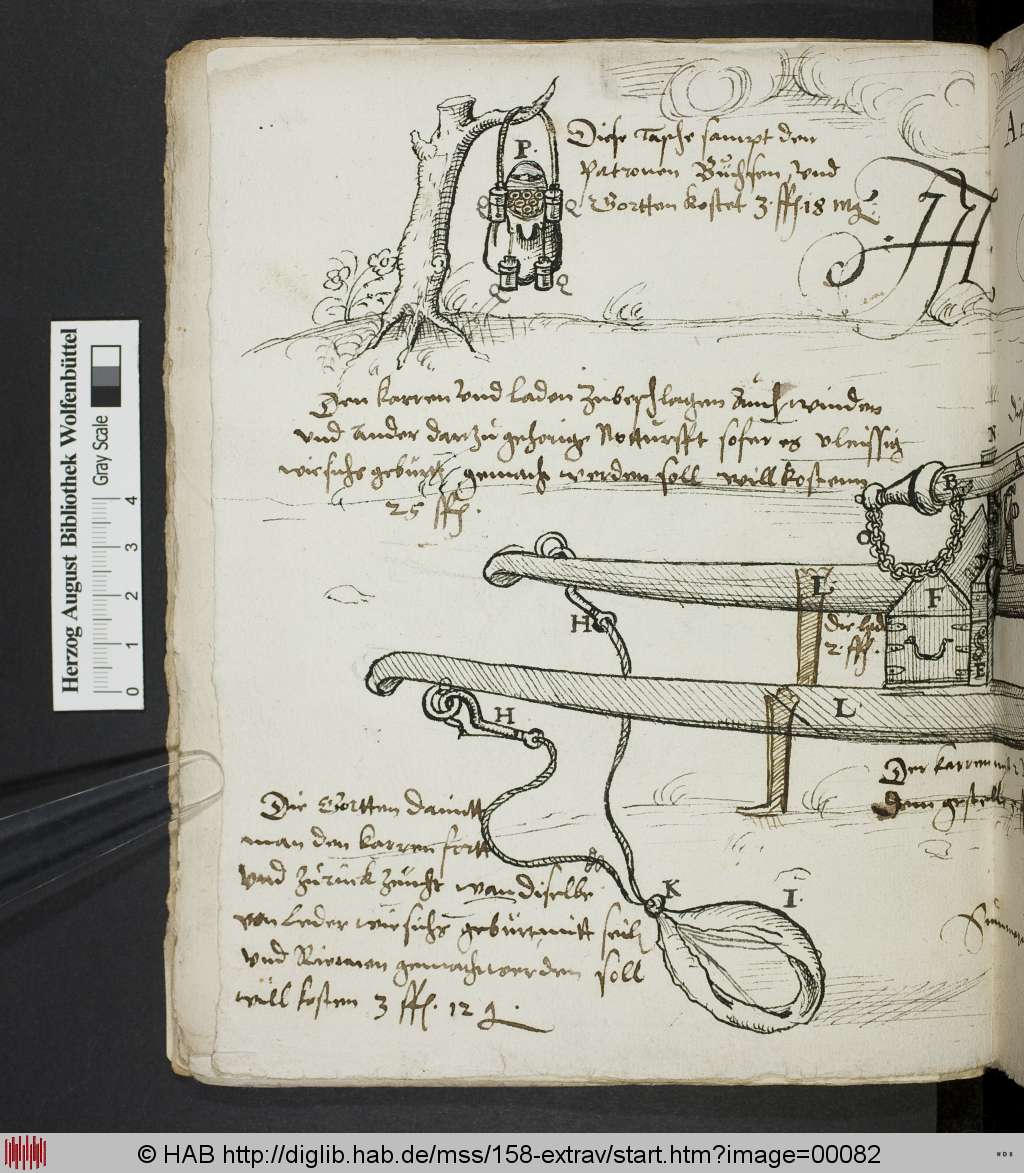 P.
Diese Tasche sampt den
Patronen Büchsen, und
Gortten kostet 3 ffl. 18
Q Q
Q Q
Den karren und laden zubeschlagen Auch winden
und ander darzu gehorige Notturfft sofer es vleissig
wie sichs geburtt, gemacht werden soll will kostenn
25 ffl.
N
B
O
L F
H die lad
2. ffl.
E
L
H
Der karren mit
dem gestell
Die Gortten damitt
man den karren fortt
und zuruck zeucht wan diselbe
von leder wie sichs geburt mitt seil
und Riemen gemacht werden soll
will kosten 3 ffl. 12
K I.
Summa
Herzog August Bibliothek Wolfenbüttel
Gray Scale
0 1 2 3 4
© HAB http://diglib.hab.de/mss/158-extrav/start.htm?image=00082